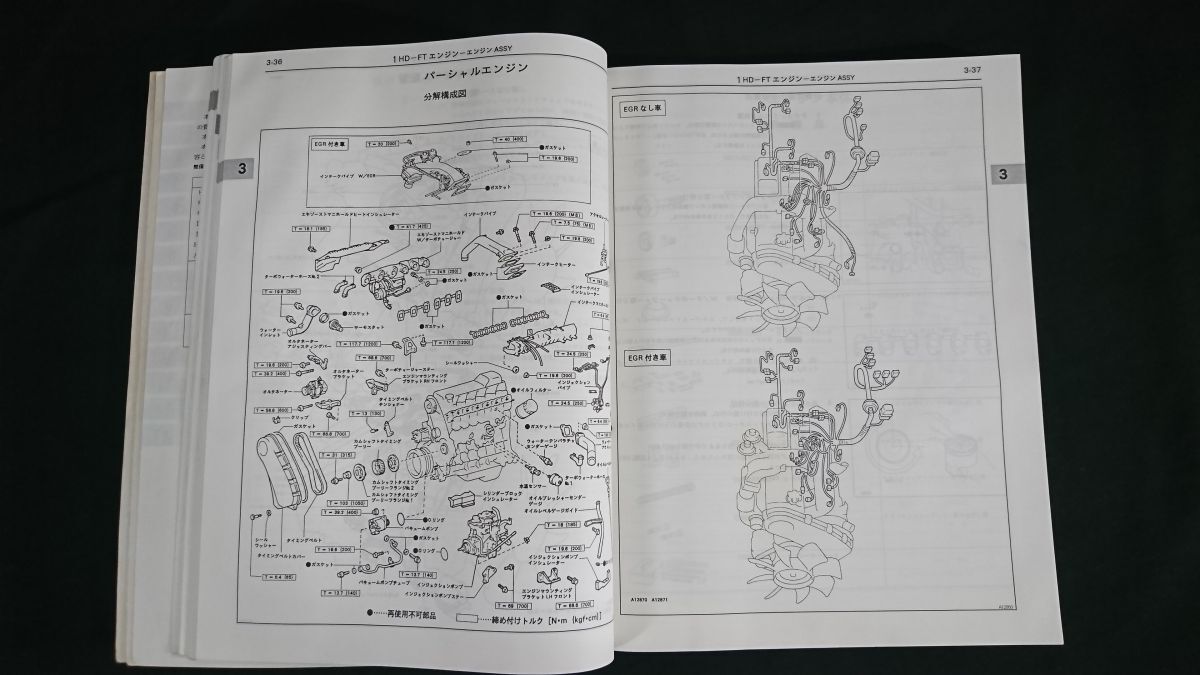 3-36
1HD-FT エンジン-エンジン ASSY
パーシャルエンジン
分解構成図
3
EGR 付き車
T = 20 {200}
T = 40 {400}
●ガスケット
T = 19.6 {200}
インテークパイプ W/EGR
●ガスケット
エキゾーストマニホールドヒートインシュレーター
T = 18.1 {185}
T = 41.7 {425}
エキゾーストマニホールド
W/ターボチャージャー
インテークパイプ
T = 19.6 {200}
T = 7.5 {75}
T = 19.6 {200}
ターボウォーターホースNo.2
T = 24.5 {250}
●ガスケット
●ガスケット
インテークヒーター
インテークパイプ
インシュレーター
T = 19.6 {200}
●ガスケット
ウォーター
インレット
サーモスタット
●ガスケット
●ガスケット
オルタネーター
アジャスティングバー
T = 117.7 {1200}
T = 117.7 {1200}
T = 68.6 {700}
T = 19.6 {200}
T = 39.2 {400}
オルタネーター
オルタネーター
ブラケット
ターボチャージャーステー
エンジンマウンティング
ブラケットRHフロント
シールワッシャー
T = 24.5 {250}
T = 19.6 {200}
インジェクション
パイプ
T = 24.5 {250}
T = 58.8 {600}
クリップ
ガスケット
タイミングベルト
テンショナー
T = 13 {130}
T = 68.6 {700}
●オイルフィルター
●ガスケット
カムシャフトタイミング
プーリー
T = 31 {315}
ウォーターテンパラチャ
センダーゲージ
カムシャフトタイミング
プーリーフランジNo.2
カムシャフトタイミング
プーリーフランジNo.1
水温センサー
ターボウォーターホース
No.1
T = 103 {1050}
T = 39.2 {400}
シリンダーブロック
インシュレーター
オイルプレッシャーセンダー
ゲージ
オイルレベルゲージガイド
●Oリング
バキュームポンプ
シール
ワッシャー
タイミングベルト
タイミングベルトカバー
●ガスケット
●Oリング
T = 19.6 {200}
T = 18 {185}
T = 19.6 {200}
●ガスケット
T = 13.7 {140}
バキュームポンプチューブ
インジェクションポンプ
インジェクションポンプ
インシュレーター
T = 6.4 {65}
T = 13.7 {140}
インジェクションポンプステー
エンジンマウンティング
ブラケットLHフロント
T = 69 {700}
T = 68.6 {700}
●……再使用不可部品
……締め付けトルク [N・m {kgf・cm}]
1HD-FT エンジン-エンジン ASSY
3-37
EGR なし車
3
EGR 付き車
A12870 A12871